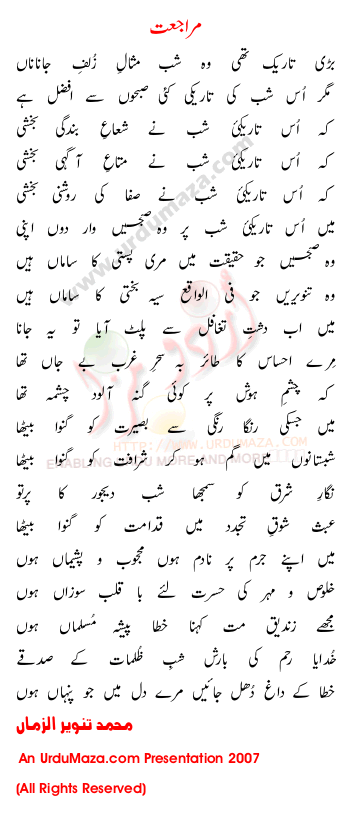 مراجعت
بڑی تاریک تھی وہ شب مثالِ زُلفِ جاناناں
مگر اُس شب کی تاریکی کئی صبحوں سے افضل ہے
کہ اُس تاریکئ شب نے شعاعِ بندگی بخشی
کہ اُس تاریکئ شب نے متاعِ آگہی بخشی
کہ اُس تاریکئ شب نے صفا کی روشنی بخشی
میں اُس تاریکئ شب پر وہ صبحیں وار دوں اپنی
وہ صبحیں جو حقیقت میں مری پستی کا ساماں ہیں
وہ تنویریں جو فی الواقع سیہ بختی کا ساماں ہیں
میں اب دشتِ تغافل سے پلٹ آیا تو یہ جانا
مِرے احساس کا طائر بہ سحرِ غرب بے جاں تھا
کہ چشمِ ہوش پر کوئی گنہ آلود چشمہ تھا
میں جسکی رنگا رنگی سے بصیرت کو گنوا بیٹھا
شبستانوں میں گم ہو کر شرافت کو گنوا بیٹھا
نگارِ شرق کو سمجھا شب دیجور کا پرتو
عبث شوقِ تجدد میں قدامت کو گنوا بیٹھا
میں اپنے جرم پر نادم ہوں محجوب و پشیماں ہوں
خلوص و مہر کی حسرت لئے با قلب سوزاں ہوں
مجھے زندیق مت کہنا خطا پیشہ مُسلماں ہوں
خُدایا رحم کی بارش شبِ ظلمات کے صدقے
خطا کے داغ دُھل جائیں مرے دل میں جو پنہاں ہوں
محمد تنویر الزماں
An UrduMaza.com Presentation 2007
(All Rights Reserved)
www.urdumaza.com
اردو مزا
HTTP://WWW.URDUMAZA.COM
ENABLING URDU MORE AND MORE